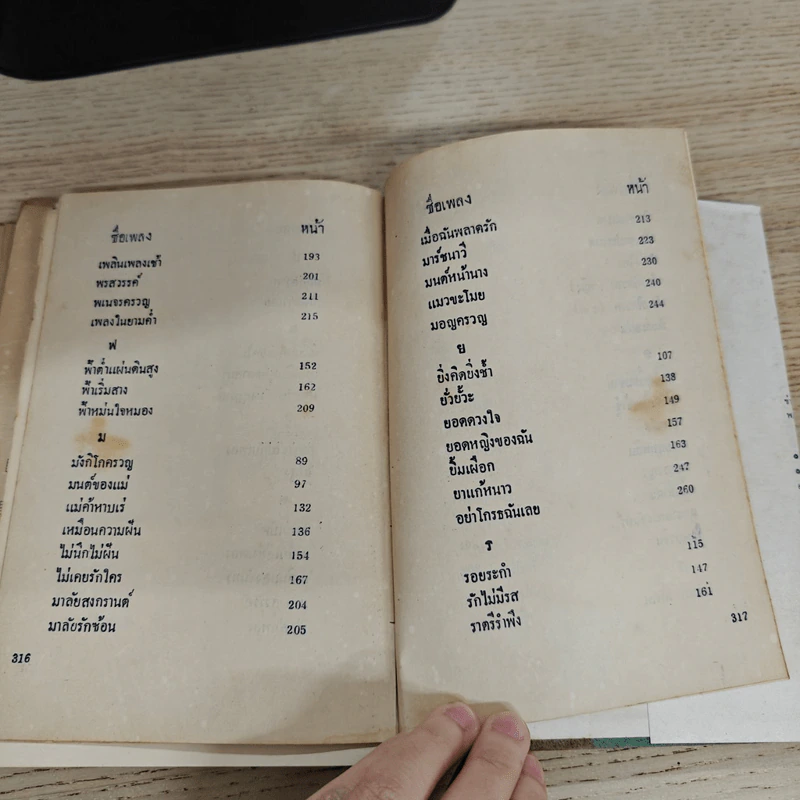 ชื่อเพลง หน้า
เพลินเพลงเช้า 193
พรสวรรค์ 201
พเนจรครวญ 211
เพลงในยามค่ำ 215
ฟ
ฟ้าต่ำแผ่นดินสูง 152
ฟ้าเริ่มสาง 162
ฟ้าหม่นใจหมอง 209
ม
มังกิโกครวญ 89
มนต์ของแม่ 97
แม่ค้าหาบเร่ 132
เหมือนความฝัน 136
ไม่นึกไม่ฝัน 154
ไม่เคยรักใคร 167
มาลัยสงกรานต์ 204
มาลัยรักซ้อน 205
316
ชื่อเพลง หน้า
เมื่อฉันพลาดรัก 213
มาร์ชนาวี 223
มนต์หน้านาง 230
แมวขะโมย 240
มอญครวญ 244
ย
ยิ่งคิดยิ่งช้ำ 107
ยั่วยั้วะ 138
ยอดดวงใจ 149
ยอดหญิงของฉัน 157
ยิ้มเผือก 163
ยาแก้หนาว 247
อย่าโกรธฉันเลย 260
ร
รอยระกำ 115
รักไม่มีรส 147
ราตรีรำพึง 161
317